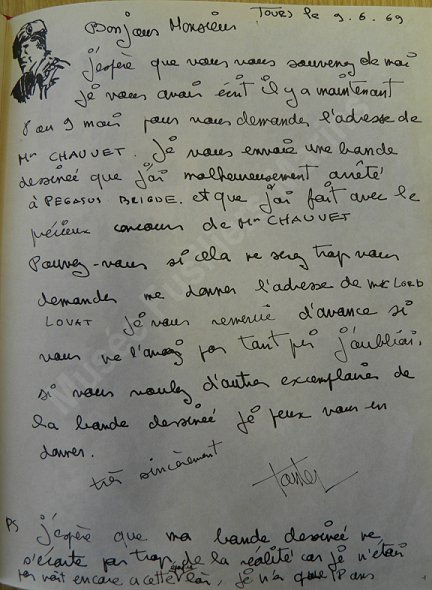 TOURS le 9.6.69
Bonjour Monsieur
j'espère que vous vous souvenez de moi
je vous avais écrit il y a maintenant
8 ou 9 mois pour vous demander l'adresse de
Mr CHAUVET. Je vous envoie une bande
dessinée que j'ai malheureusement arrêté
à PEGASUS BRIGDE. et que j'ai fait avec le
précieux concours de Mr CHAUVET
Pouvez-vous si cela ne serez trop vous
demander me donner l'adresse de LORD
LOVAT je vous remercie d'avance si
vous ne l'avez pas tant pis j'oubliai,
si vous voulez d'autres exemplaires de
la bande dessinée je peux vous en
donner.
très sincèrement
PS j'espère que ma bande dessinée ne
s'écarte pas trop de la réalité car je n'étais
pas encore a cette là, je n'ai que ans